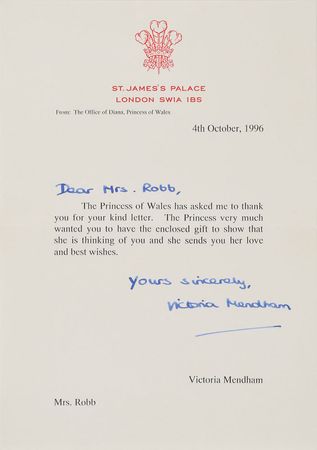 ST. JAMES'S PALACE
LONDON SW1A 1BS
From: The Office of Diana, Princess of Wales
4th October, 1996
Dear Mrs. Robb,
The Princess of Wales has asked me to thank
you for your kind letter. The Princess very much
wanted you to have the enclosed gift to show that
she is thinking of you and she sends you her love
and best wishes.
Yours sincerely,
Victoria Mendham
Victoria Mendham
Mrs. Robb